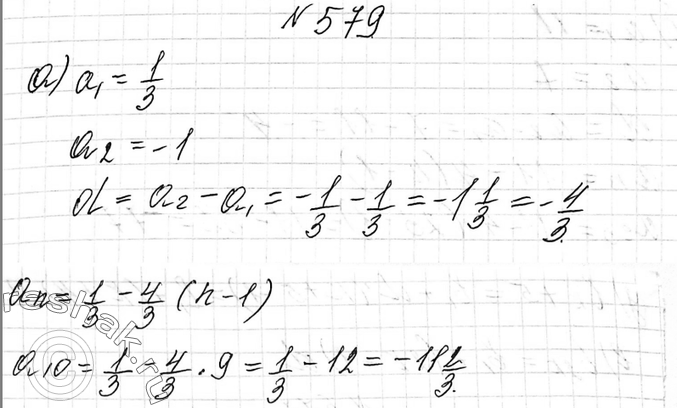 № 579
а) a₁ = 1/3
a₂ = -1
d = a₂ - a₁ = -1/3 - 1/3 = -1 1/3 = -4/3.
aₙ = 1/3 - 4/3 (n-1)
a₁₀ = 1/3 - 4/3 · 9 = 1/3 - 12 = -11 2/3.
reshak.ru